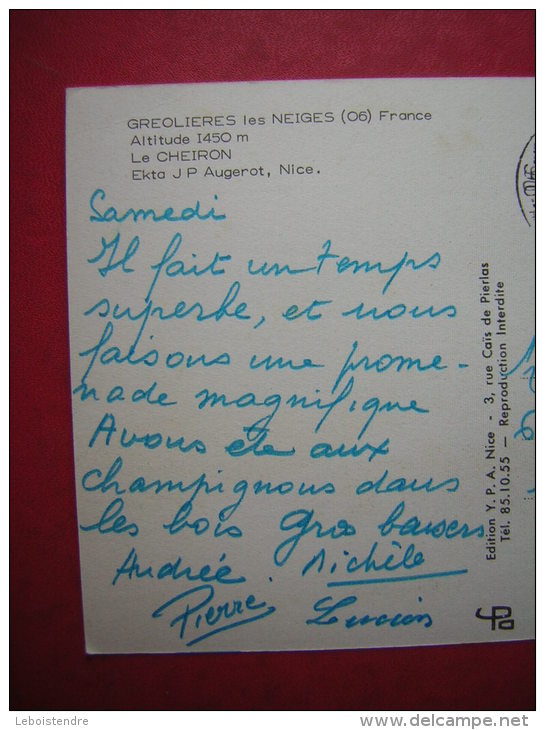 GREOLIERES les NEIGES (06) France
Altitude 1450 m
Le CHEIRON
Ekta J P Augerot, Nice.
Samedi
Il fait un temps
superbe, et nous
faisons une prome-
nade magnifique
Avons été aux
champignons dans
les bois Gros baisers
Andrée. Michèle
Pierre Lucien
Edition Y. P. A. Nice - 3, rue Caïs de Pierlas
Tél. 85.10.55 — Reproduction Interdite
Leboistendre
www.delcampe.net